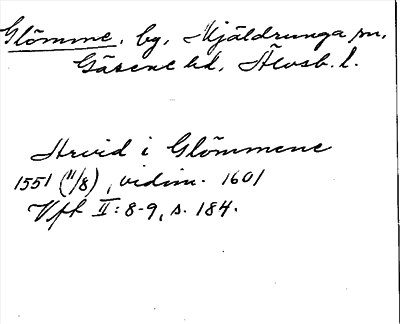 Glömme. by, Mjäldrunga sn,
Gäsene hd, Älvsb. l.
Arvid i Glömmene
1551 (11/8), vidim. 1601
Vft II: 8-9, s. 184.